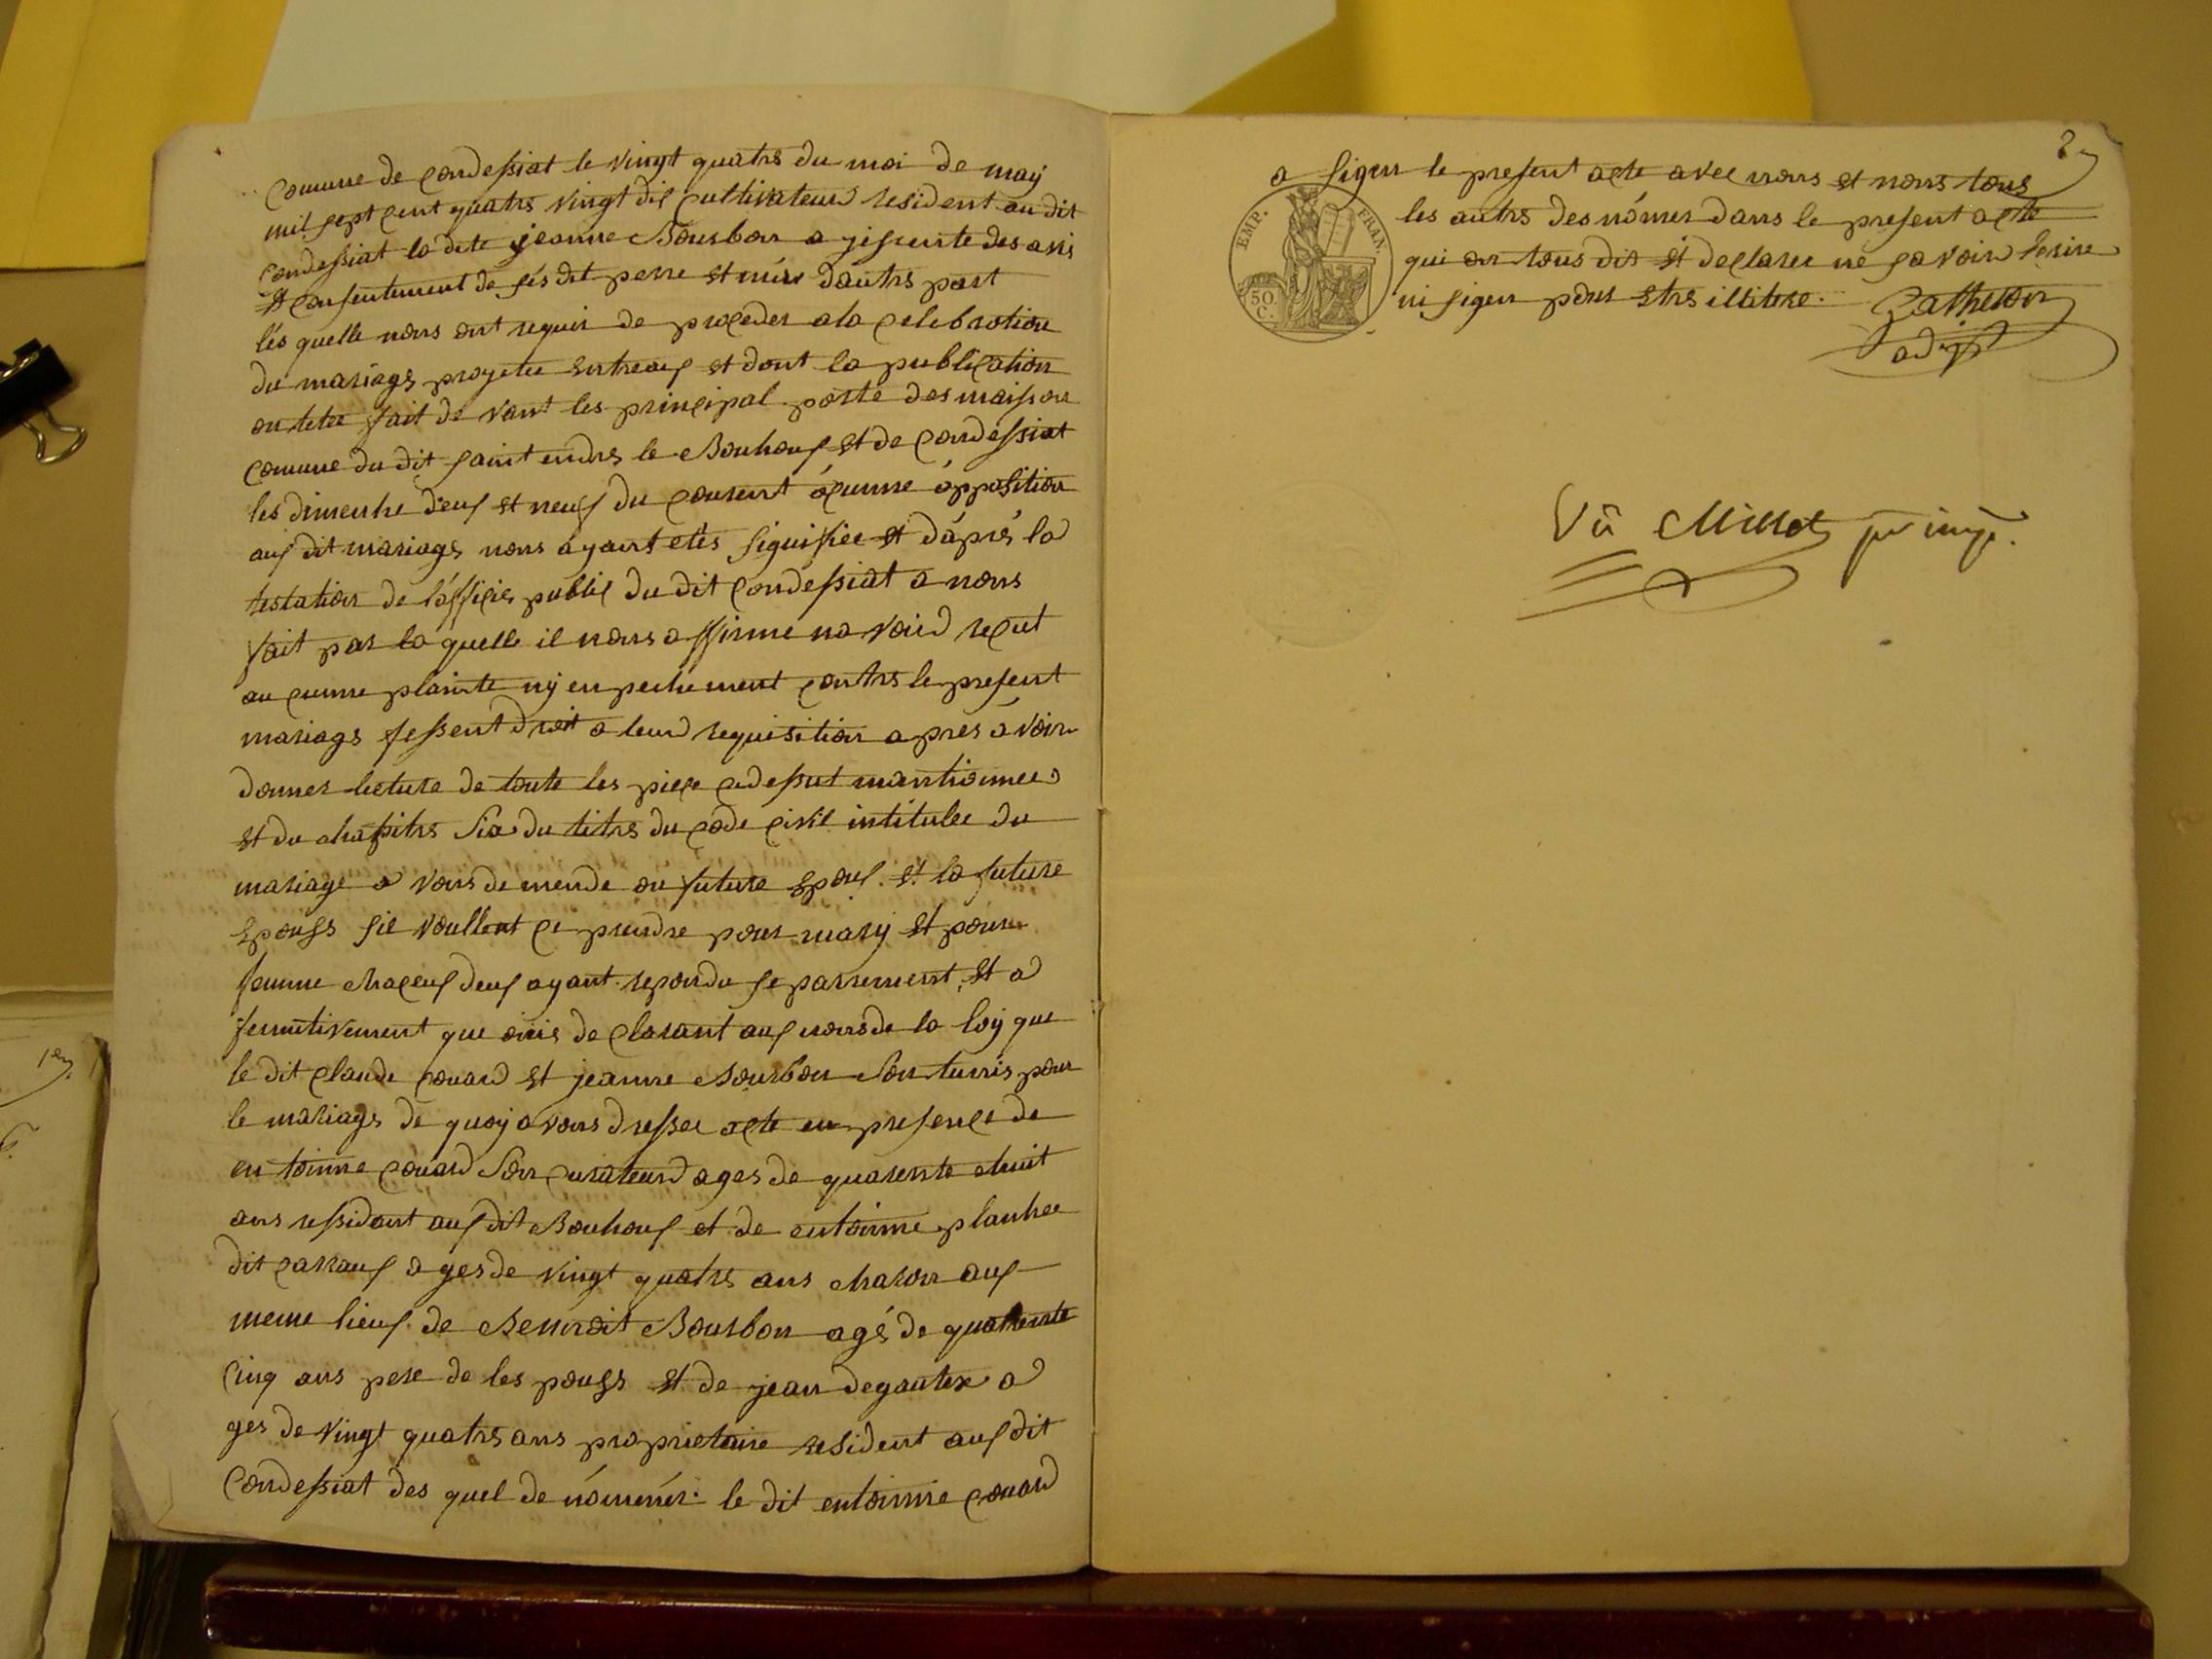 comune de condessiat le vingt quatrs du moi de may
mil sept cent quatrs vingt dis cultivateur resident au dit
condessiat la dite jeanne Bourbon a gissente des avis
et consentement de sés dit perre et mére d'autrs part
lés quelle nous ont requis de proceder a la celebration
du mariags projetée entreaus et dont la publication
on tetee fait de vant les principal porte des maisson
comune du dit saint endrs le Bouhous et de condessiat
les dimenhe deus et neuf du courent aucunne opposition
aus dit mariags nous ayant etés signifiée et d'aprés la
testation de l'officies public du dit condessiat a nous
fait par la quelle il nous affirme na voird reçut
au cunne plainte ny en pechement contrs le present
mariags fessent droit a leurd requisition apres avoir
donner lecture de toute les piece cedessut mantionnee
et du chapitrs six du titrs du code civil intitulee du
mariage a vons demende au future epous et la future
epouss sil voullent ce prendre pour mary et pour
femme chaceus deus ayant repondu separrement et a
fermitivement que ouis declarant aus nons de la loy que
le dit claude couard et jeanne Bourbon son tunis par
le mariags de quoy avons dressee acte en presence de
en toinne couard son curateurd ages de quarente ehuit
ans ressidant aus dit Bouhous et de entoinne planhee
dit carraus a ges de vingt quatrs ans charon aus
meme lieus de Bennoit Bourbon agé de quarente
cinq ans pere de les pouss et de jean degautex a
ges de vingt quatrs ans proprietaire resident aus dit
condessiat des quel de nommér le dit entoinne couard
2
a signer le present acte avec nous et nons tous
les autrs desnómer dans le present acte
qui on tous dis et declarer ne savoir lecrire
ni signer pour etrs illitere.
EMP. FRAN.
50
C.
adjt
Vû Millot
1er